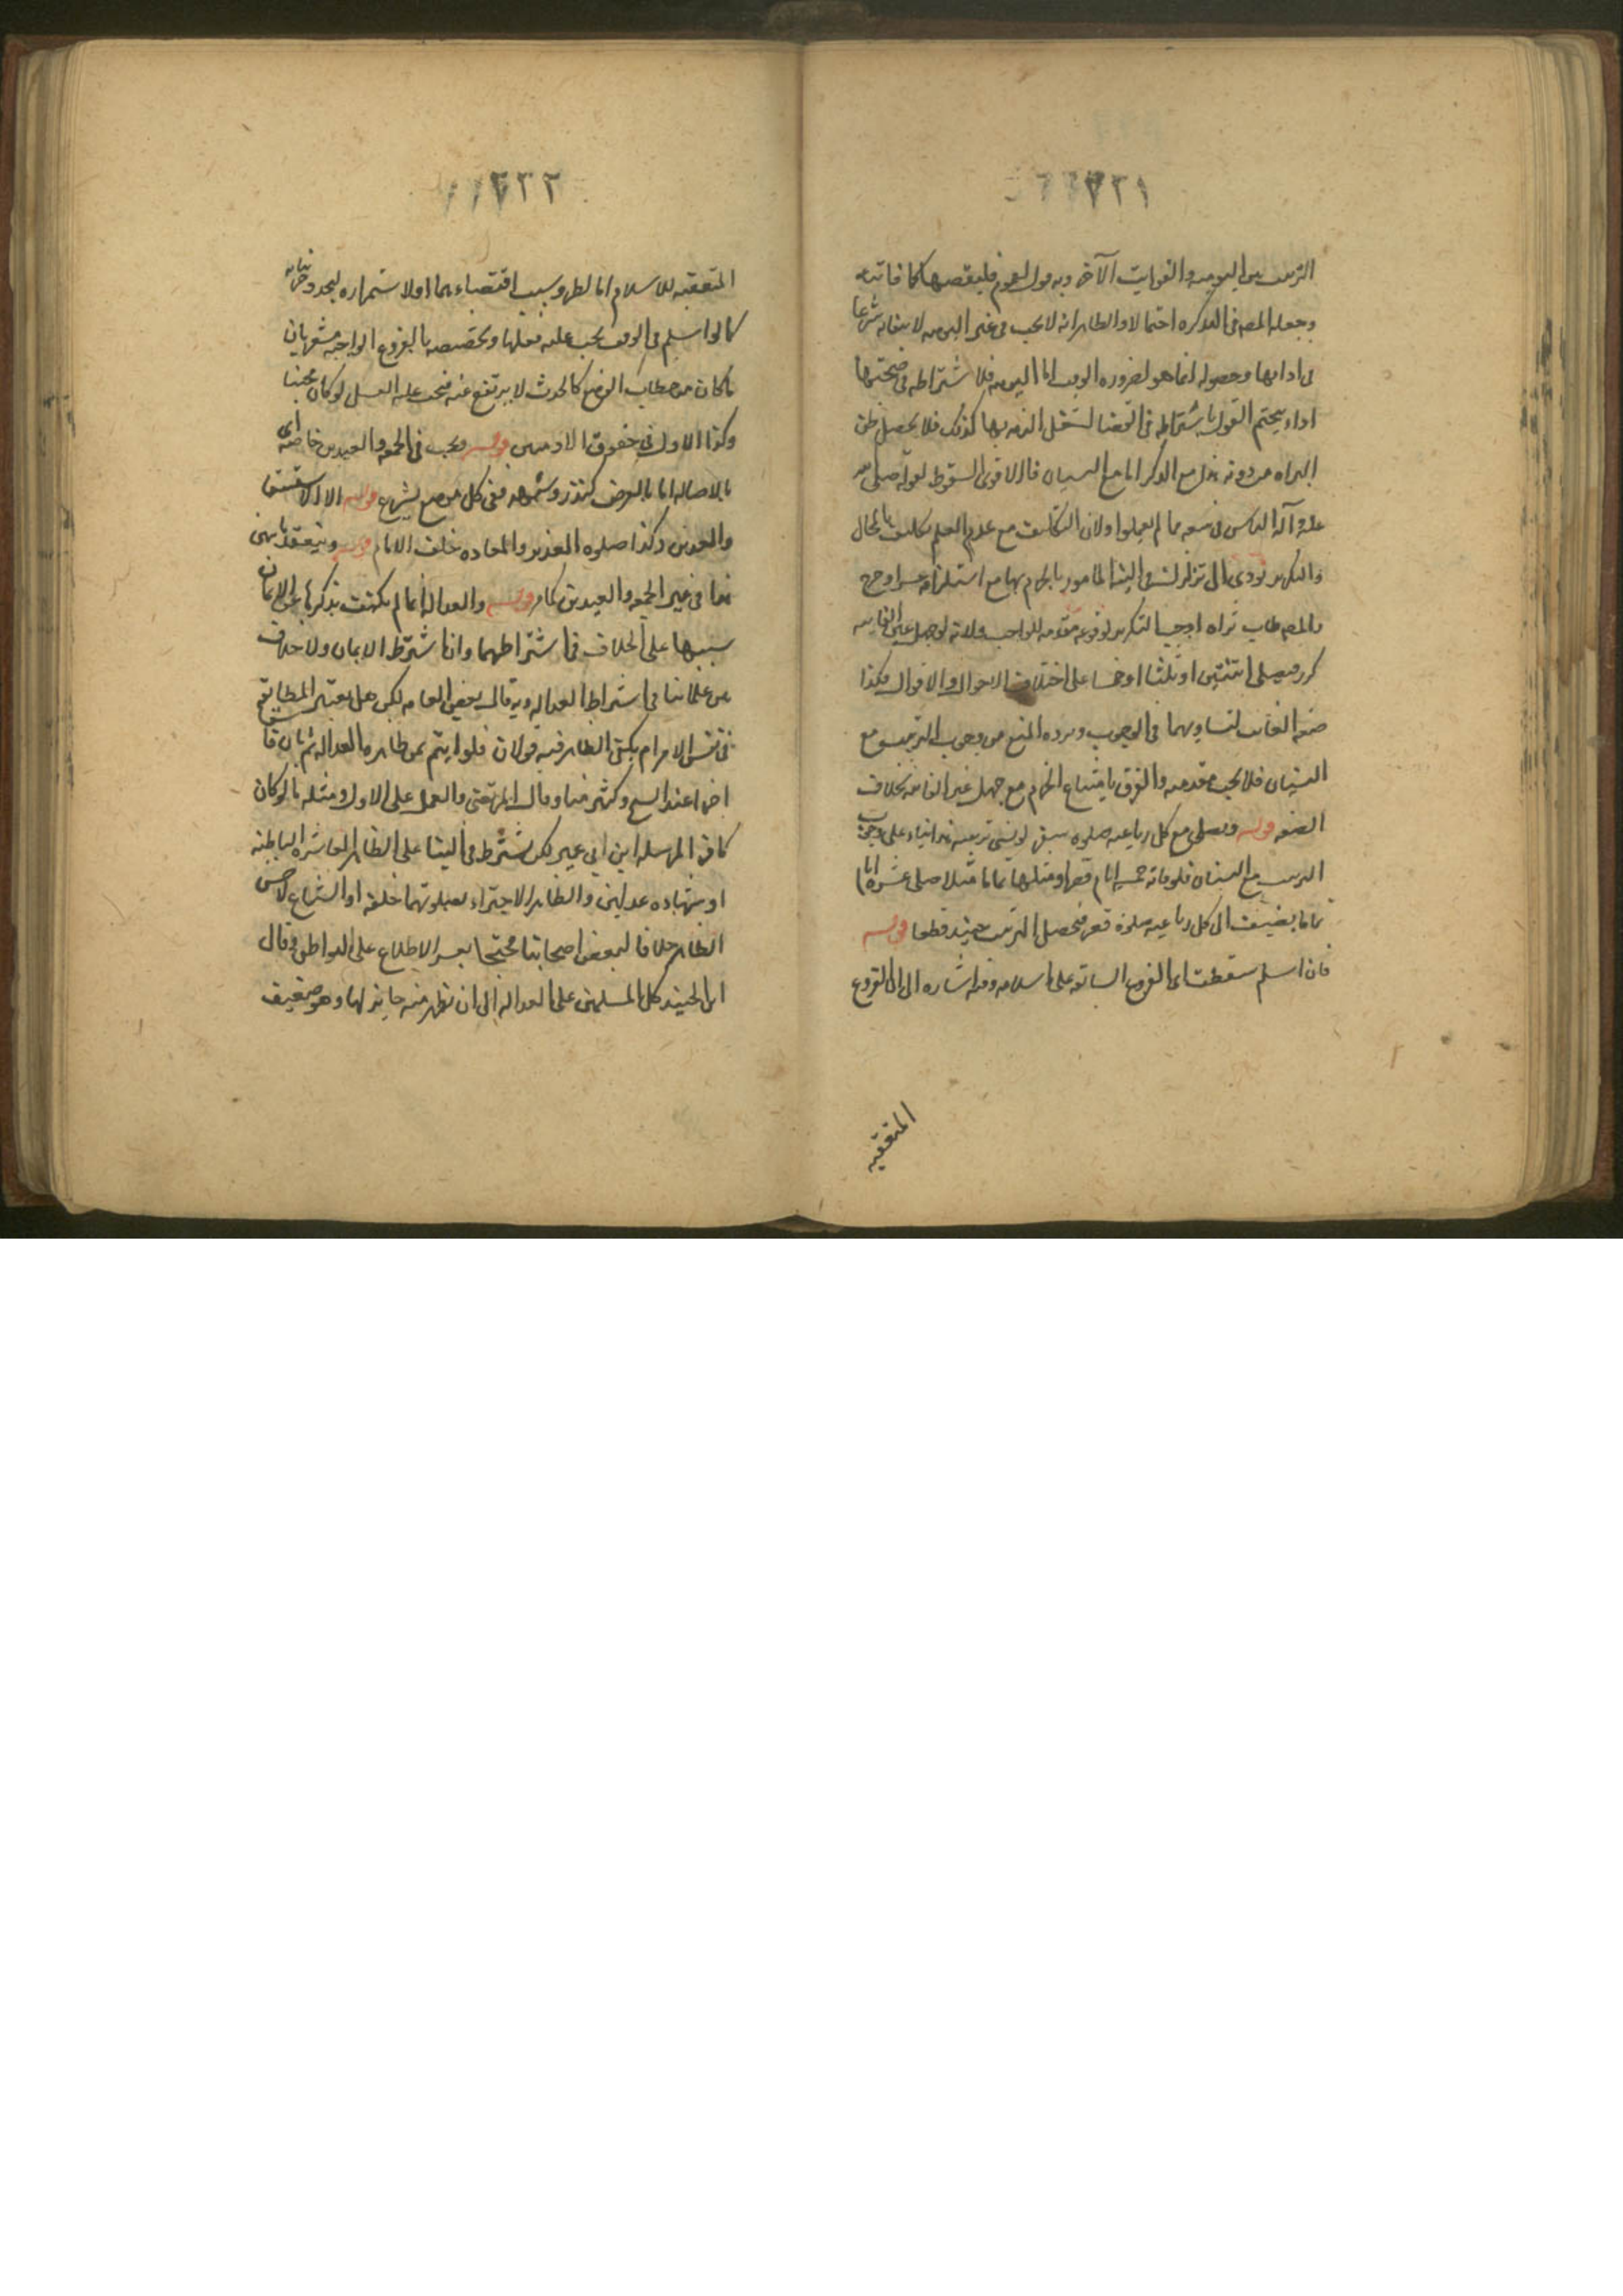 ٢٢١
الترتيب بين اليوميه والفوايت الآخر وبه قول لعموم فليقضها كما فاتته
وجعله المصه فى التذكره احتمالا والظاهر انه لا يجب فى غير اليوميه لا
فى ادايها وحصوله انما هو لضروره الوقت اما اليوميه فلاشتراطه فى صحتها
اداء يتحتم القول باشتراطه فى القضا لشغل الذمه بها كذلك فلا يحصل ظن
البراه من دونه هذا مع الذكر اما مع النسيان فالاقوى السقوط لقوله صلى الله
عليه وآله الناس فى سعه مما لم يعلموا ولان التكليف مع عدم العلم تكليف بالمحال
والتكرير تودى الى الما مور بالجزم بها مع استلزامه عسرا وحرج
والمصه طاب ثراه اوجب التكرير لوقوعه مقدمه للواجب ولانه لو جهل عين الفايته
كرر فيصلى اثنتين او ثلثا او خمسا على اختلاف الاحوال والاقوال فكذا
صفه الفايت لتساويهما فى الوجوب ويرده المنع من وجوب الترتيب مع
النسيان فلا يجب مقدمته والفرق بامتناع الجزم مع جهل عين الفايته بخلاف
الصفه قوله ويصلى مع كل رباعيه صلوه سفر لو نسى ترتيبه هذا بناء على وجوب
الترتيب مع النسيان فلو فاته خمسه ايام قصرا ومثلها تماما مثلا صلى عشره ايام
تماما يضيف الى كل رباعيه صلوه قصر فتحصل الترتيب حينئذ قطعا قوله
فان اسلم سقطت اى الفروع السابقه على اسلامه وفيه اشاره الى ان الفروع
المتعقبه
٢٢٢
المتعقبه للاسلام اما لطرو سبب اقتضاء بها اولا ستمراره لتجدد
كما لو اسلم فى الوقت يجب عليه فعلها وتخصيصه بالفروع الواجبه مشعر بان
ما كان من خطاب الوضع كالحدث لا يرتفع عنه فيجب عليه الغسل لو كان مجنبا
وكذا الاول فى حقوق الادميين قوله ويجب فى الجمعه والعيدين خاصه اى
بالاصاله اما بالعرض كنذر وشبهه ففى كل موضع يشرع قوله الا الاستسقا
والعيدين وكذا صلوه الغدير والمعاده خلف الامام قوله وينعقد باثنين
هذا فى غير الجمعه والعيدين كما مر قوله والعداله انما لم يكتف بذكرها عن الايمان
سببها على الخلاف فى اشتراطهما وانا شرط الايمان ولا خلاف
بين علمائنا فى اشتراط العداله وبه قال بعض العامه لكن هل يعتبر المطابقه
فى نفس الامر ام يكفى الظاهر فيه قولان فلو ايتم بمن ظاهره العداله ثم بان فاسق
اجزا عند الشيخ وكثير منا وقال المرتضى والعمل على الاول ومثله ما لو كان
كافرا لمرسله ابن ابى عمير لكن يشترط فى البنا على الظاهر المعاشره الباطنه
او شهاده عدلين والظاهر الاجتزاء بصلوتهما خلفه او الشياع لا حسن
الظاهر خلافا لبعض اصحابنا محتجا بعسر الاطلاع على البواطن وقال
ابن الجنيد كل المسلمين على العداله الى ان يظهر منه ما يزيلها وهو ضعيف